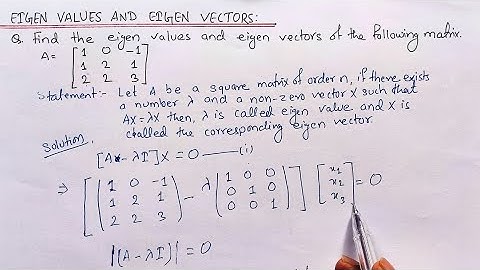 EIGEN VALUES AND EIGEN VECTORS:
Q. Find the eigen values and eigen vectors of the following matrix.
A= [1 0 -1
1 2 1
2 2 3]
Statement:- Let A be a square matrix of order n, if there exists
a number λ and a non-zero vector X such that
AX=λX then, λ is called eigen value and X is
called the corresponding eigen vector.
Solution,
[A-λI]X=0 —(i)
⇒ [(1 0 -1
1 2 1
2 2 3) - λ (1 0 0
0 1 0
0 0 1)] [x1
x2
x3] = 0
|(A-λI)|=0